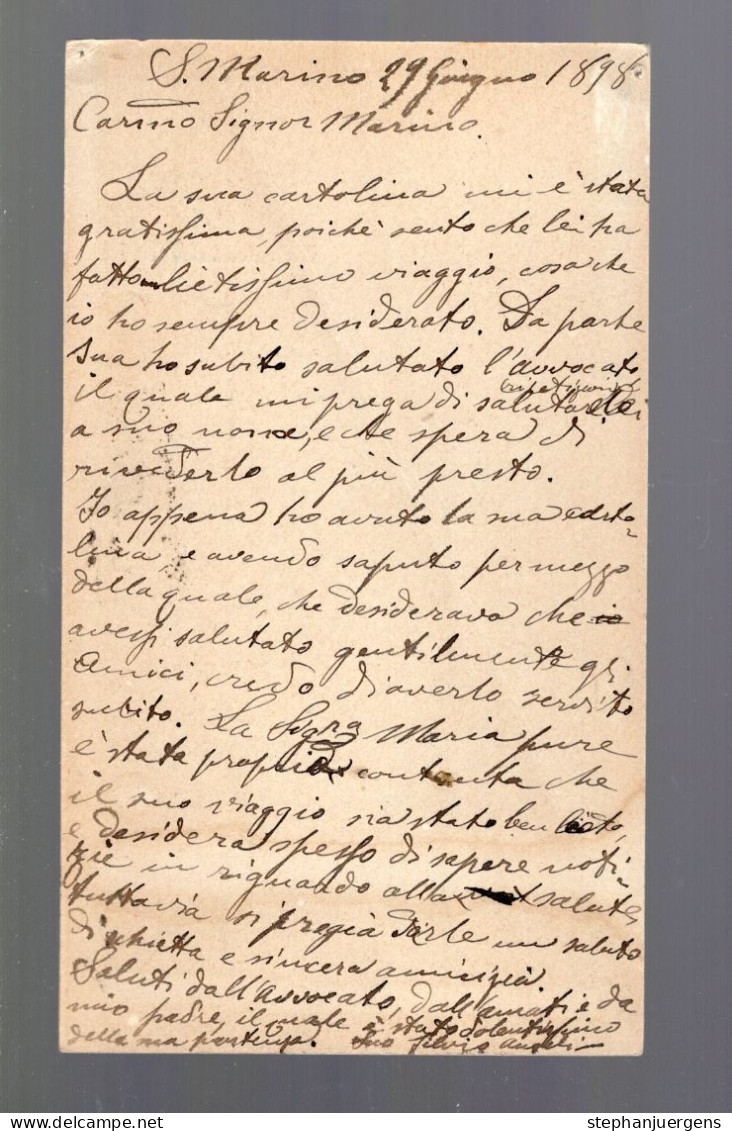 S. Marino 29 Giugno 1898
Carmo Signor Marino.
La sua cartolina mi è stata
gratissima, poichè sento che lei ha
fatto lietissimo viaggio, cosa che
io ho sempre desiderato. Da parte
sua ho subito salutato l'avvocato
il quale mi prega di salutarlo
a suo nome, e che spera di
rivederlo al più presto.
Io appena ho avuto la sua carto-
lina, e avendo saputo per mezzo
della quale, che desiderava che io
avessi salutato gentilmente gli
amici, credo d'averlo servito
subito. La Sigra Maria pure
è stata propria contenta che
il suo viaggio sia stato ben lieto,
e desidera spesso di sapere noti-
zie in riguardo alla salute,
tuttavia si pregia darle un saluto
di schietta e sincera amicizia.
Saluti dall'Avvocato, dall'Amati e da
mio padre, il quale è stato dolentissimo
della sua partenza. Suo Silvio Angeli
stephanjuergens